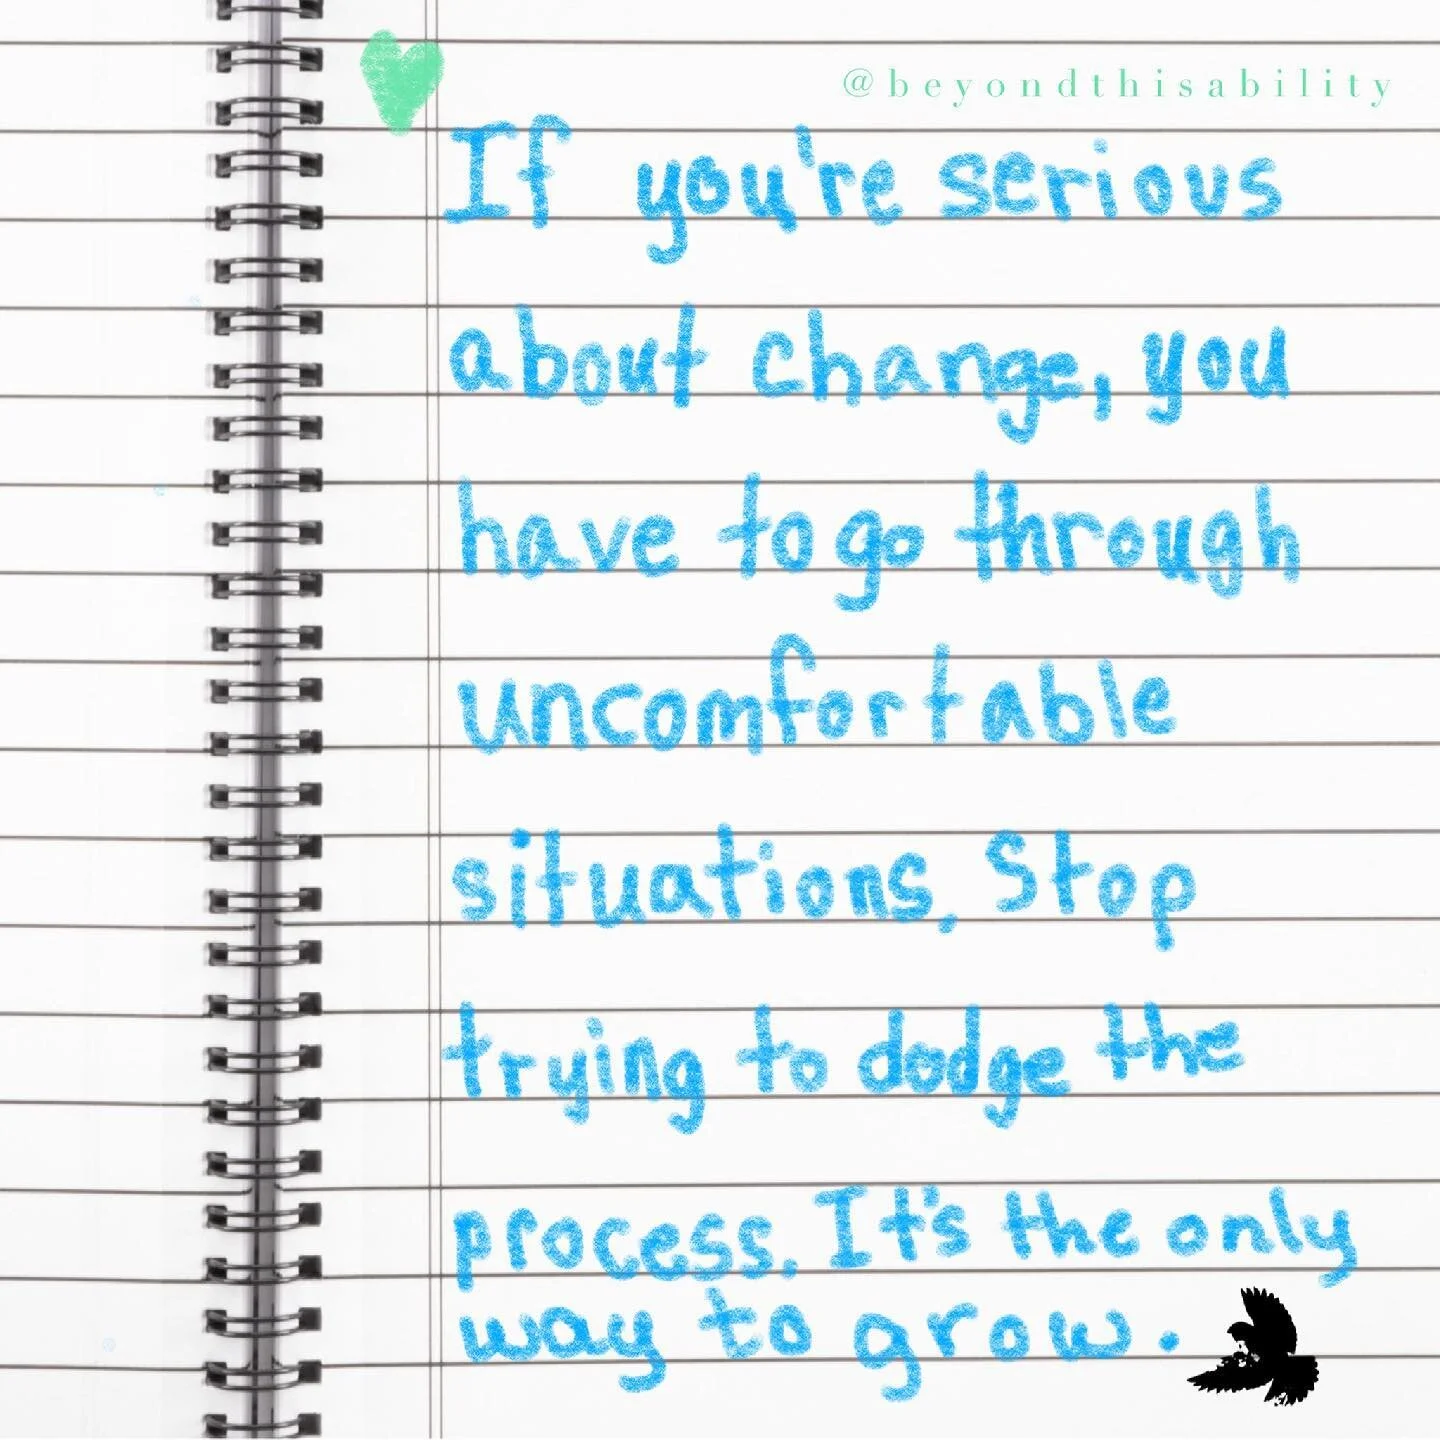 @beyondthisability
If you're serious
about change, you
have to go through
uncomfortable
situations. Stop
trying to dodge the
process. It's the only
way to grow.